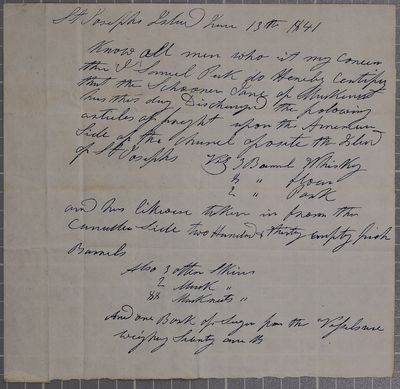 St Josephs Island June 13th 1841
Know all men who it my Concern
that I Samuel Peck do Hereby Centifey
that the Schooner Jane of
has this day Discharged the folowing
articles of freight upon the American
Side of the Channel oposite the Island
of St Josephs Viz 3 Barrel Whiskey
" flour
2 " Pork
and has likewise taken in from the
Canadian Side two Hundred & thirty empty fish
Barrels
Also 3 otter Skins
2 Mink "
Muskrats "
And one Bark of Sugar for the
weighing Seventy one lb